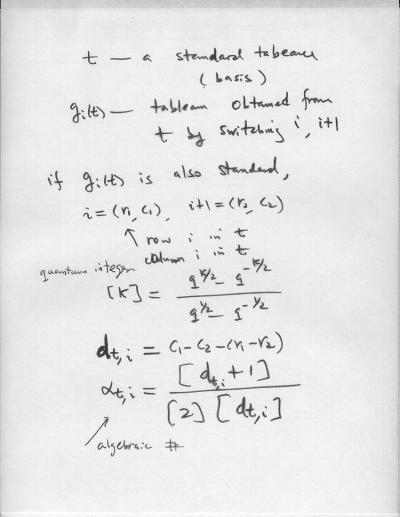 t — a standard tableau
(basis)
gᵢ(t) — tableau obtained from
t by switching i, i+1
if gᵢ(t) is also standard,
i = (r₁, c₁), i+1 = (r₂, c₂)
↑ row i in t
column i in t
quantum integer
[K] = (q^{K/2} − q^{−K/2}) / (q^{1/2} − q^{−1/2})
d_{t,i} = c₁ − c₂ − (r₁ − r₂)
α_{t,i} = [d_{t,i} + 1] / ([2] [d_{t,i}])
algebraic #